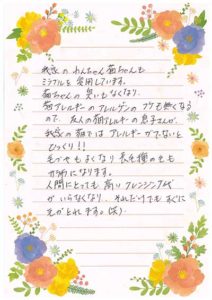 我家のわんちゃん猫ちゃんも
ミラブルを愛用しています。
猫ちゃんの臭いもなくなり、
猫アレルギーのアレルゲンのフケも無くなる
ので、友人の猫アレルギーの息子さんが、
我家の猫ではアレルギーがでないと
びっくり!!
毛ツヤもよくなり長毛種の毛も
サラサラになります。
人間にとっても高いクレンジング代
がいらなくなり、それだけでもすぐに
元がとれます。(笑)